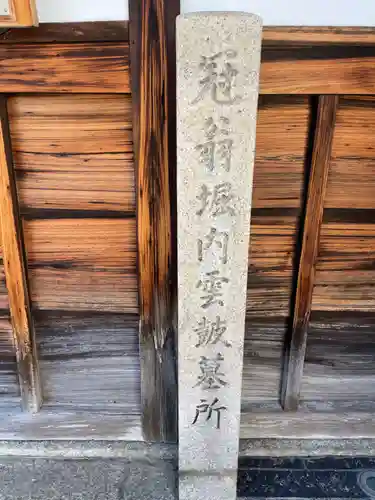 冠翁堀内雲皷墓所